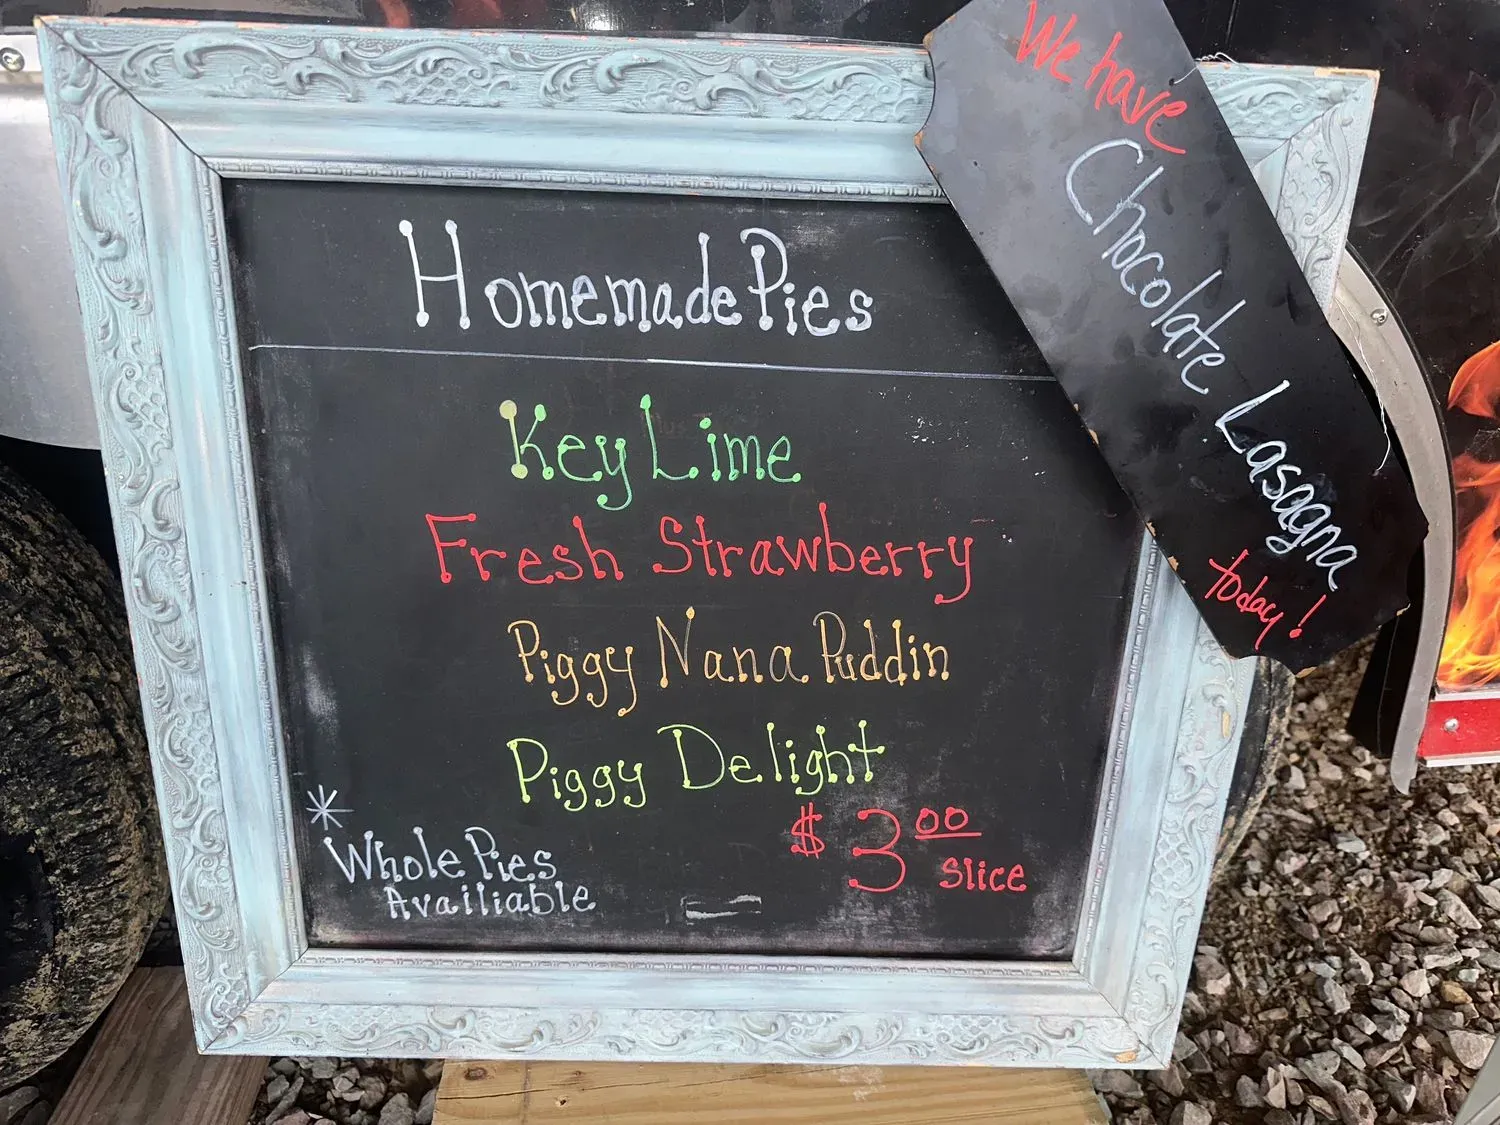 Homemade Pies
Key Lime
Fresh Strawberry
Piggy Nana Puddin
Piggy Delight
$3.00
Slice
* Whole Pies
Availiable
We have
Chocolate Lasagna
today!